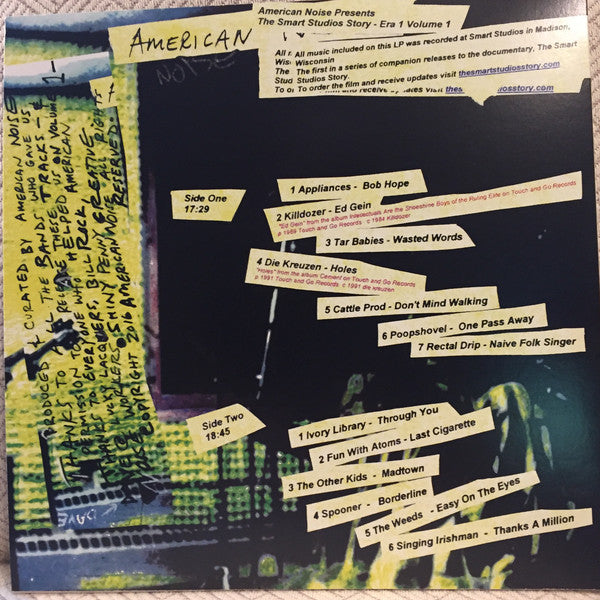 American Noise Presents
The Smart Studios Story - Era 1 Volume 1
AMERICAN
NOISE
All music included on this LP was recorded at Smart Studios in Madison,
Wisconsin
The first in a series of companion releases to the documentary, The Smart
Studios Story.
To order the film and receive updates visit thesmartstudiosstory.com
Side One
17:29
1 Appliances - Bob Hope
2 Killdozer - Ed Gein
"Ed Gein" from the album Intellectuals Are the Shoeshine Boys of the Ruling Elite on Touch and Go Records
p 1989 Touch and Go Records c 1984 Killdozer
3 Tar Babies - Wasted Words
4 Die Kreuzen - Holes
"Holes" from the album Cement on Touch and Go Records
p 1991 Touch and Go Records c 1991 die kreuzen
5 Cattle Prod - Don't Mind Walking
6 Poopshovel - One Pass Away
7 Rectal Drip - Naive Folk Singer
Side Two
18:45
1 Ivory Library - Through You
2 Fun With Atoms - Last Cigarette
3 The Other Kids - Madtown
4 Spooner - Borderline
5 The Weeds - Easy On The Eyes
6 Singing Irishman - Thanks A Million
PRODUCED & CURATED BY AMERICAN NOISE
THANKS TO ALL THE BANDS WHO GAVE US
PERMISSION TO RELEASE THESE TRACKS - &
THANKS TO EVERYONE WHO HELPED US ON VOLUME 1-
LACQUERS, BILL TRACK AMERICAN
SHINY PENNY CREATIVE
COPYRIGHT 2016 AMERICAN NOISE ALL RIGHTS
RESERVED
DAVE